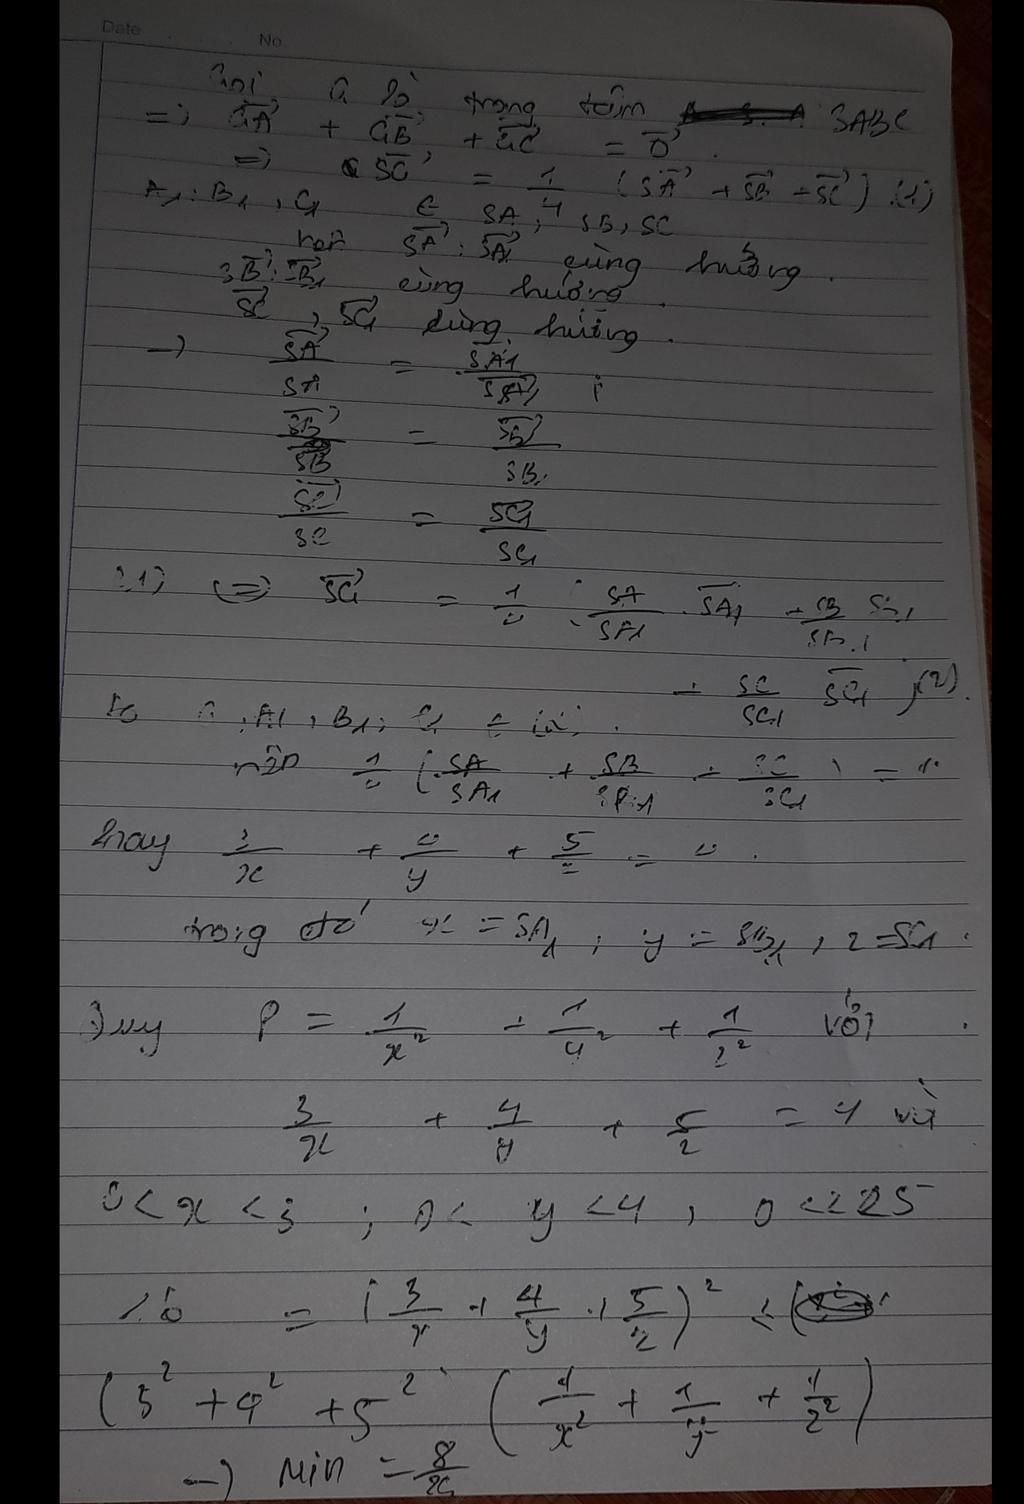 Date No
Gọi G là trọng tâm SABC
=> GA + GB + GC = 0
=> SG = 1/4 (SA + SB + SC) (1)
A1, B1, C1 ∈ SA, SB, SC
nên SA, SA1 cùng hướng.
SB, SB1 cùng hướng.
SC, SC1 cùng hướng.
-> SA/SA = SA1/SA1 ;
SB/SB = SB/SB1
SC/SC = SC1/SC1
(1) <=> SG = 1/4 (SA/SA1 . SA1 + SB/SB1 SB1
+ SC/SC1 SC1 ) (2).
G, A1, B1, C1 ∈ (α).
nên 1/4 (SA/SA1 + SB/SB1 + SC/SC1) = 1
hay 3/x + 4/y + 5/z = 4.
trong đó x = SA1 ; y = SB1 , z = SC1.
P = 1/x² + 1/y² + 1/z² với
3/x + 4/y + 5/z = 4 và
0 < x < 3 ; 0 < y < 4 , 0 < z < 5
16 = (3/x + 4/y + 5/z)² ≤
(3² + 4² + 5²) (1/x² + 1/y² + 1/z²)
-> Min = 8/25